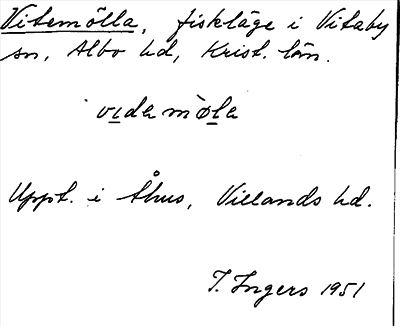 Vitemölla, fiskläge i Vitaby
sn, Albo hd, Krist. län.
vıdem ø̀la
Uppt. i Åhus, Villands hd.
I. Ingers 1951